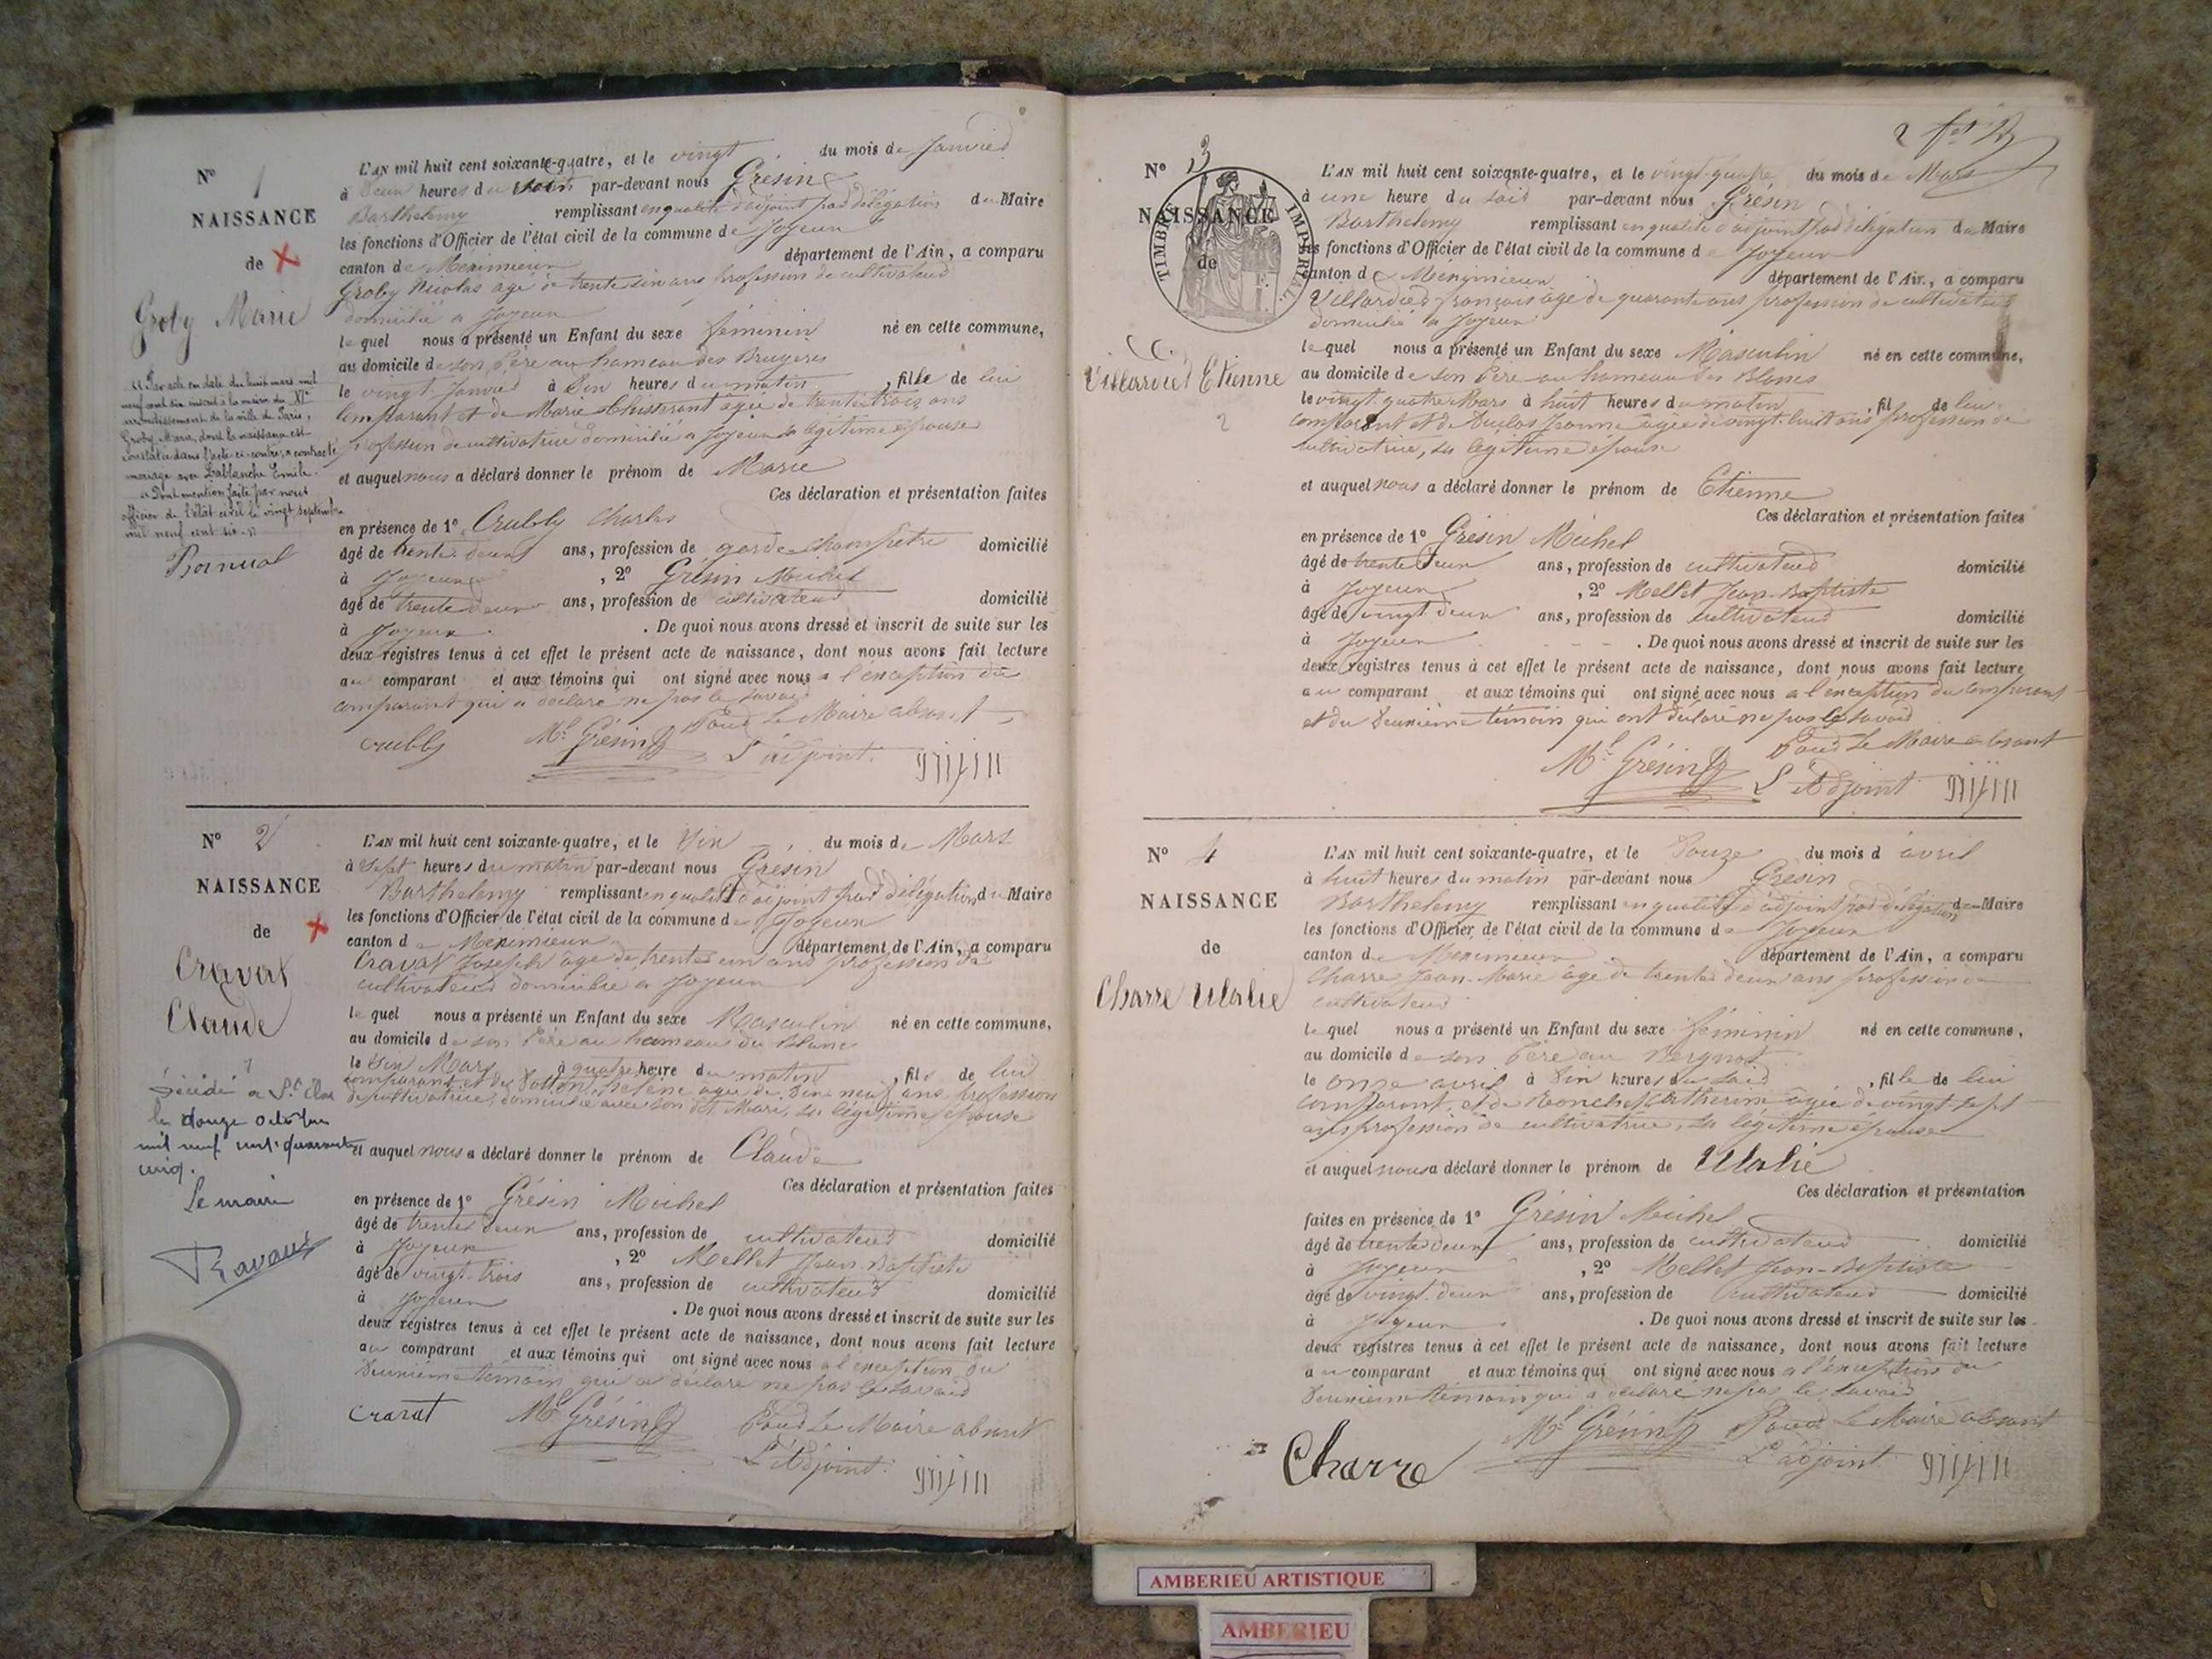 N° 1
NAISSANCE
de
Groby Marie
"Par acte en date du huit mars mil
neuf cent six inscrit à la mairie du XIe
arrondissement de la ville de Paris,
Groby Marie, dont la naissance est
constatée dans l'acte ci-contre, a contracté
mariage avec Lablanche Emile.
"Dont mention faite par nous
officier de l'état civil le vingt septembre
mil neuf cent six."
L'AN mil huit cent soixante-quatre, et le vingt du mois de Janvier
à deux heures du soir par-devant nous Grésin
Barthelemy remplissant en qualité d'adjoint par délégation du Maire
les fonctions d'Officier de l'état civil de la commune de Joyeux
canton de Meximieux département de l'Ain, a comparu
Groby Nicolas âgé de trente six ans profession de cultivateur
domicilié à Joyeux
lequel nous a présenté un Enfant du sexe féminin né en cette commune,
au domicile de son Père au hameau des Bruyeres
le vingt Janvier à dix heures du matin, fille de lui
comparant et de Marie âgée de trente trois ans
profession de cultivatrice domiciliée à Joyeux sa légitime épouse
et auquel nous a déclaré donner le prénom de Marie
Ces déclaration et présentation faites
en présence de 1° Crubly Charles
âgé de trente deux ans, profession de garde champêtre domicilié
à Joyeux, 2° Grésin Michel
âgé de trente deux ans, profession de cultivateur domicilié
à Joyeux. De quoi nous avons dressé et inscrit de suite sur les
deux registres tenus à cet effet le présent acte de naissance, dont nous avons fait lecture
au comparant et aux témoins qui ont signé avec nous a l'exception du
comparant qui a déclaré ne pas le savoir
Crubly Mel Grésin Pour Le Maire absent
L'adjoint. grésin
N° 2
NAISSANCE
de
Cravat
Claude
Décédé a St
le douze octobre
mil neuf cent quarante
cinq.
Le maire
Ravaux
L'AN mil huit cent soixante-quatre, et le Dix du mois de Mars
à Sept heures du matin par-devant nous Grésin
Barthelemy remplissant en qualité d'adjoint par délégation du Maire
les fonctions d'Officier de l'état civil de la commune de Joyeux
canton de Meximieux département de l'Ain, a comparu
Cravat Joseph âgé de trente un ans profession de
cultivateur domicilié à Joyeux
lequel nous a présenté un Enfant du sexe Masculin né en cette commune,
au domicile de son Père au hameau du Blanc
le dix Mars à quatre heure du matin, fils de lui
comparant et de âgée de Dix neuf ans profession
de cultivatrice, domiciliée avec son dit Mari, sa légitime épouse
et auquel nous a déclaré donner le prénom de Claude
Ces déclaration et présentation faites
en présence de 1° Grésin Michel
âgé de trente deux ans, profession de cultivateur domicilié
à Joyeux, 2° Mellet Jean-Baptiste
âgé de vingt-trois ans, profession de cultivateur domicilié
à Joyeux. De quoi nous avons dressé et inscrit de suite sur les
deux registres tenus à cet effet le présent acte de naissance, dont nous avons fait lecture
au comparant et aux témoins qui ont signé avec nous a l'exception du
Deuxième témoin qui a déclaré ne pas le savoir
Cravat Mel Grésin Pour Le Maire absent
L'Adjoint. grésin
2
N° 3
TIMBRE IMPERIAL
NAISSANCE
de
Villardier Etienne
2
L'AN mil huit cent soixante-quatre, et le vingt-quatre du mois de Mars
à une heure du soir par-devant nous Grésin
Barthelemy remplissant en qualité d'adjoint par délégation du Maire
les fonctions d'Officier de l'état civil de la commune de Joyeux
canton de Meximieux département de l'Ain, a comparu
Villardier françois âgé de quarante ans profession de cultivateur
domicilié à Joyeux
lequel nous a présenté un Enfant du sexe Masculin né en cette commune,
au domicile de son Père au hameau des Blancs
le vingt quatre Mars à huit heures du matin, fil de lui
comparant et de âgée de vingt-huit ans profession de
cultivatrice, sa légitime épouse
et auquel nous a déclaré donner le prénom de Etienne
Ces déclaration et présentation faites
en présence de 1° Grésin Michel
âgé de trente deux ans, profession de cultivateur domicilié
à Joyeux, 2° Mellet Jean-Baptiste
âgé de vingt deux ans, profession de cultivateur domicilié
à Joyeux. De quoi nous avons dressé et inscrit de suite sur les
deux registres tenus à cet effet le présent acte de naissance, dont nous avons fait lecture
au comparant et aux témoins qui ont signé avec nous a l'exception du comparant
et du Deuxième témoin qui ont déclaré ne pas le savoir
Mel Grésin Pour Le Maire absent
L'Adjoint grésin
N° 4
NAISSANCE
de
Charre Ulalie
L'AN mil huit cent soixante-quatre, et le Douze du mois d avril
à huit heures du matin par-devant nous Grésin
Barthelemy remplissant en qualité d'adjoint par délégation du Maire
les fonctions d'Officier de l'état civil de la commune de Joyeux
canton de Meximieux département de l'Ain, a comparu
Charre Jean-Marie âgé de trente deux ans profession de
cultivateur
lequel nous a présenté un Enfant du sexe féminin né en cette commune,
au domicile de son Père au
le onze avril à Dix heures du soir, fille de lui
comparant, et de Catherine âgée de vingt-sept
ans profession de cultivatrice, sa légitime épouse
et auquel nous a déclaré donner le prénom de Ulalie
Ces déclaration et présentation
faites en présence de 1° Grésin Michel
âgé de trente deux ans, profession de cultivateur domicilié
à Joyeux, 2° Mellet Jean-Baptiste
âgé de vingt-deux ans, profession de cultivateur domicilié
à Joyeux. De quoi nous avons dressé et inscrit de suite sur les
deux registres tenus à cet effet le présent acte de naissance, dont nous avons fait lecture
au comparant et aux témoins qui ont signé avec nous a l'exception du
Deuxième témoin qui a déclaré ne pas le savoir
Charre Mel Grésin Pour Le Maire absent
L'adjoint grésin
AMBERIEU ARTISTIQUE
AMBERIEU